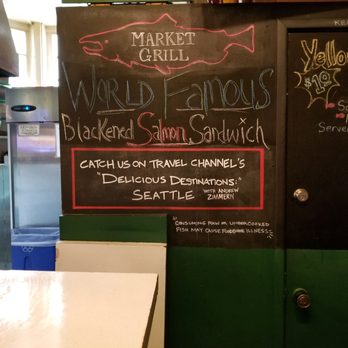 MARKET
GRILL
WORLD Famous
BlacKened Salmon Sandwich
CATCH US ON TRAVEL CHANNEL'S
"DELICIOUS DESTINATIONS:"
SEATTLE WITH ANDREW
ZIMMERN
"CONSUMING RAW OR UNDERCOOKED
FISH MAY CAUSE FOODBORNE ILLNESS"
Yello
$19
Serve